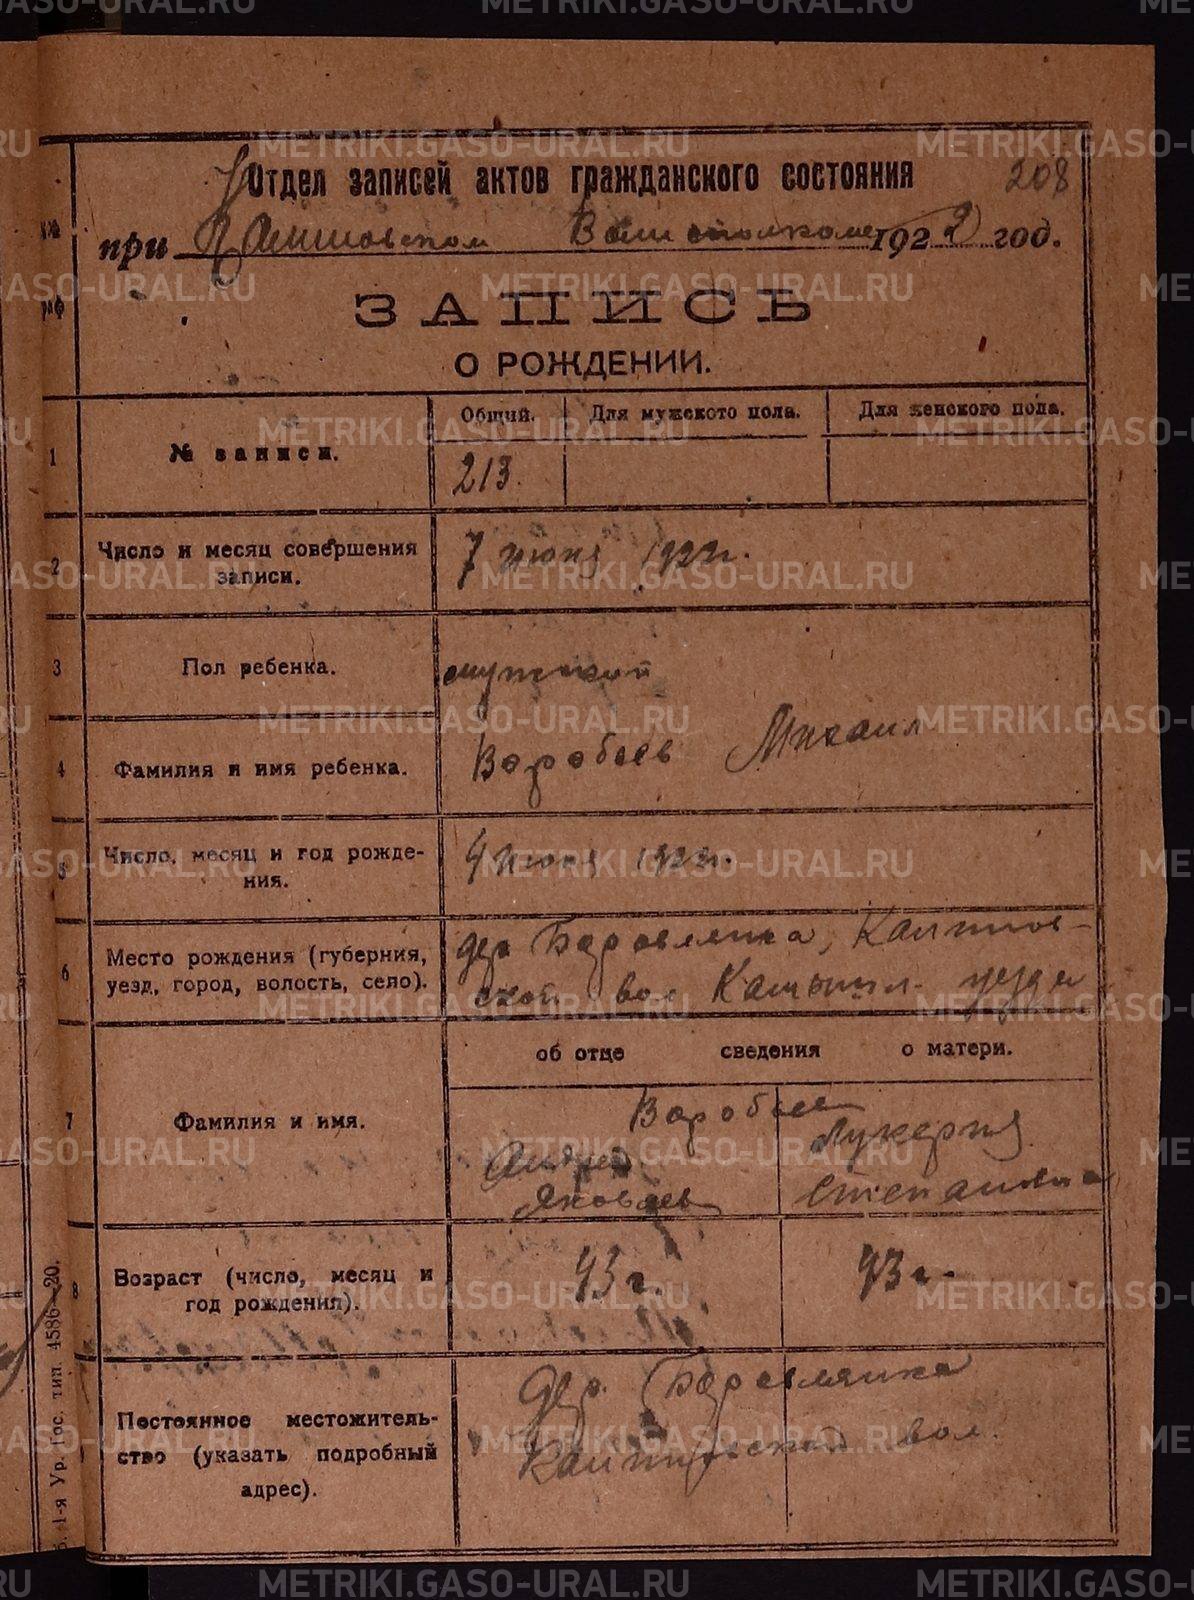 METRIKI.GASO-URAL.RU
Отдел записей актов гражданского состояния 208
при Камышовском Волисполкоме 1922 год.
ЗАПИСЬ
О РОЖДЕНИИ.
Общий. Для мужского пола. Для женского пола.
1 № записи.
213.
2 Число и месяц совершения записи.
7 июня 1922 г.
3 Пол ребенка.
мужской
4 Фамилия и имя ребенка.
Воробьев Михаил
5 Число, месяц и год рождения.
4 июня 1922 г.
6 Место рождения (губерния,
уезд, город, волость, село).
дер. Боровлянка,
ской вол Камышл. уезда
об отце сведения о матери.
7 Фамилия и имя.
Воробьев
Андрей
Яковлев
Лукерия
Степановна
8 Возраст (число, месяц и
год рождения).
43 г. 43 г.
Постоянное местожитель-
ство (указать подробный
адрес).
дер. Боровлянка
вол.
1-я Ур. Гос. тип. 4586—20.